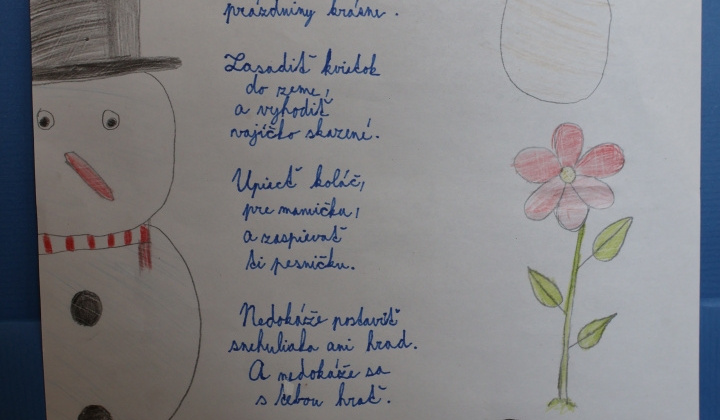 prázdniny krásne.
Zasadiť kvietok
do zeme,
a vyhodiť
vajíčko skazené.
Upiecť koláč,
pre mamičku,
a zaspievať
si pesničku.
Nedokáže postaviť
snehuliaka ani hrad.
A nedokáže sa
s tebou hrať.